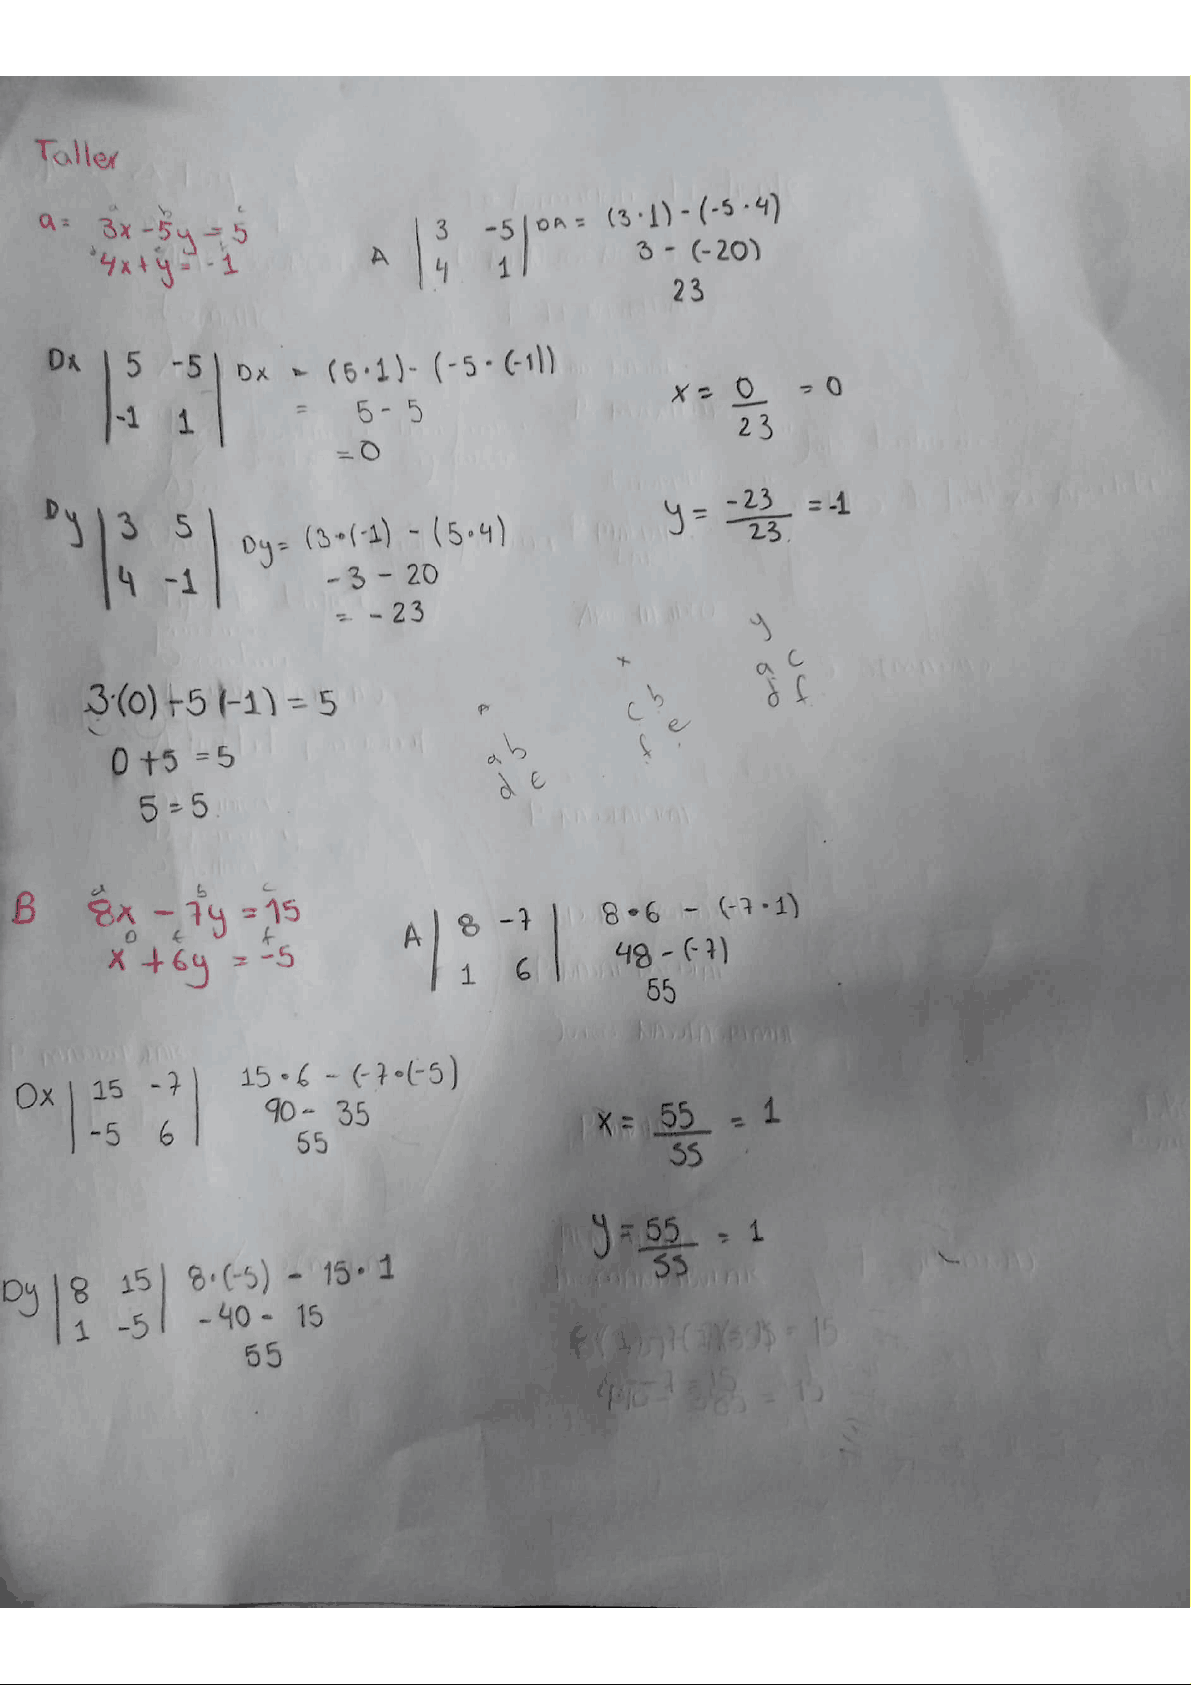 Taller
a= 3x - 5y = 5
4x + y = -1
a b c
A | 3 -5 | DA = (3·1) - (-5·4)
| 4 1 | 3 - (-20)
23
Dx | 5 -5 | Dx = (5·1) - (-5·(-1))
| -1 1 | = 5 - 5
= 0
x = 0/23 = 0
Dy | 3 5 | Dy = (3·(-1) - (5·4)
| 4 -1 | -3 - 20
= -23
y = -23/23 = -1
3·(0) + 5 (-1) = 5
0 + 5 = 5
5 = 5
A
a b
d e
x
c b
f e
y
a c
d f
B 8x - 7y = 15
x + 6y = -5
a b c
D E f
A | 8 -7 | 8·6 - (-7·1)
| 1 6 | 48 - (-7)
55
Dx | 15 -7 | 15·6 - (-7·(-5)
| -5 6 | 90 - 35
55
x = 55/55 = 1
y = 55/55 = 1
Dy | 8 15 | 8·(-5) - 15·1
| 1 -5 | -40 - 15
55